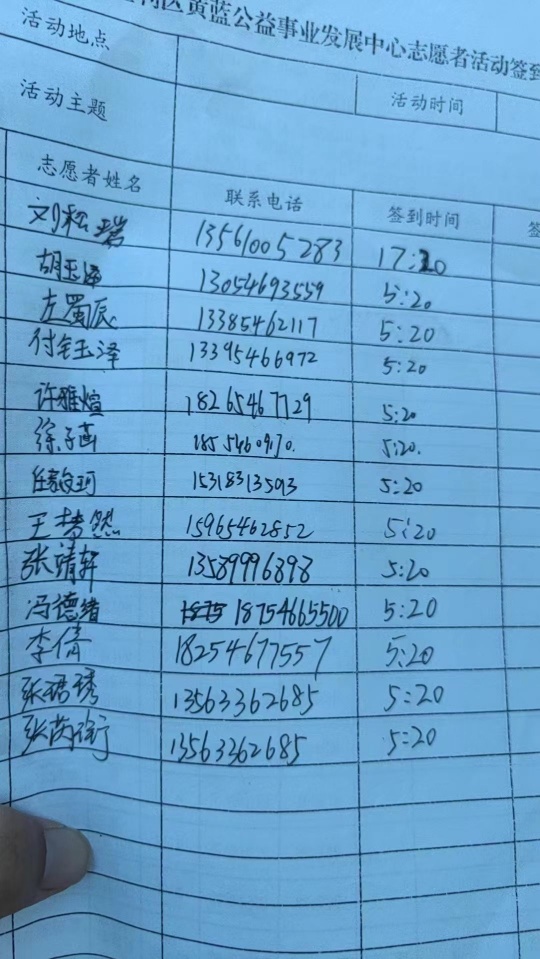 区黄蓝公益事业发展中心志愿者活动签到
活动地点
活动时间
活动主题
志愿者姓名 联系电话 签到时间 签
刘松瑞 13561005283 17:20
胡玉泽 13054693559 5:20
左蜀辰 13385462117 5:20
付钰泽 13395466972 5:20
许雅煊 18265467729 5:20
徐子菡 5:20.
任毅珂 15318313593 5:20
王梦然 15965462852 5:20
张靖轩 13589996898 5:20
冯德绪 18754665500 5:20
李倩 18254677557 5:20
张珺琇 13563362685 5:20
张芮衔 13563362685 5:20